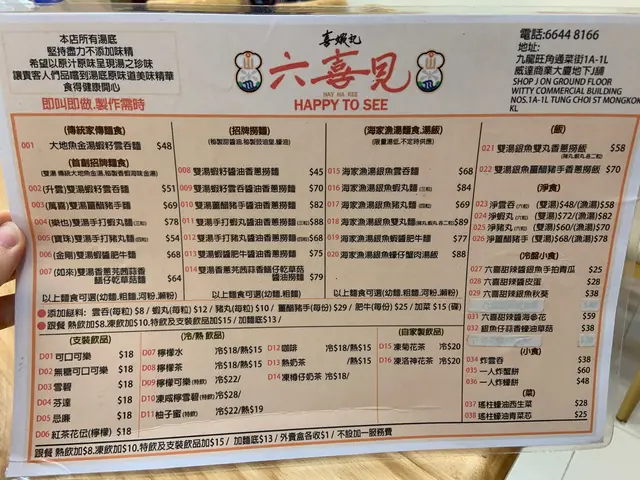 本店所有湯底
堅持盡力不添加味精
希望以原汁原味呈現湯之珍味
讓貴客人們品嚐到湯底原味道美味精華
食得健康開心
即叫即做.製作需時
喜蝦記
六喜見
HAY HA KEE
HAPPY TO SEE
電話:6644 8166
地址:
九龍旺角通菜街1A-1L
威達商業大廈地下J舖
SHOP J ON GROUND FLOOR
WITTY COMMERCIAL BUILDING
NOS.1A-1L TUNG CHOI ST MONGKOK
KL
(傳統家傳麵食)
001 大地魚金湯蝦籽雲吞麵 $48
(首創招牌湯麵)
002 (升雲)雙湯蝦籽雲吞麵 $51
003 (萬喜)雙湯薑醋豬手麵 $69
004 (樂也)雙湯手打蝦丸麵(三粒) $78
005 (寶珠)雙湯手打豬丸麵(四粒) $54
006 (金剛)雙湯蝦醬肥牛麵 $68
007 (如來)雙湯香蔥芫茜蒜香
餸仔乾草菇麵 $64
以上麵食可選(幼麵,粗麵)
(招牌撈麵)
008 雙湯蝦籽醬油香蔥撈麵 $45
009 雙湯蝦籽雲吞醬油香蔥撈麵 $68
010 雙湯薑醋豬手醬油香蔥撈麵 $82
011 雙湯手打蝦丸醬油香蔥撈麵(三粒) $88
012 雙湯手打豬丸醬油香蔥撈麵(四粒) $69
013 雙湯蝦醬肥牛醬油香蔥撈麵 $82
014 雙湯香蔥芫茜蒜香餸仔乾草菇
醬油撈麵 $79
以上麵食可選(幼麵,粗麵)
(海家漁湯麵食,湯飯)
(限量湯低,不定時供應)
015 海家漁湯銀魚雲吞麵 $68
016 海家漁湯銀魚蝦丸麵 $84
017 海家漁湯銀魚豬丸麵 $68
018 海家漁湯銀魚雙丸麵 $89
019 海家漁湯銀魚蝦醬肥牛麵 $77
020 海家漁湯銀魚蠔仔蟹肉湯飯 $88
以上麵食可選(幼麵,粗麵,河粉,瀨粉)
(飯)
021 雙湯銀魚雙丸香蔥撈飯 $58
022 雙湯銀魚薑醋豬手香蔥撈飯 $70
(淨食)
023 淨雲吞(六粒) (雙湯)$48/(漁湯)$58
024 淨蝦丸(六粒) (雙湯)$72/(漁湯)$82
025 淨豬丸(六粒) (雙湯)$60/(漁湯)$70
026 淨薑醋豬手 (雙湯)$68/(漁湯)$78
(冷盤小食)
027 六喜甜辣醬銀魚手拍青瓜 $25
028 六喜甜辣醬皮蛋 $28
029 六喜甜辣醬銀魚秋葵 $38
031 六喜甜辣醬海參花 $59
032 銀魚仔蒜香蠔油草菇 $38
(小食)
034 炸雲吞 $38
035 一人炸蟹餅 $60
036 一人炸蠔餅 $48
(菜)
037 瑤柱蠔油西生菜 $28
038 瑤柱蠔油青菜芯 $25
添加餸料: 雲吞(每粒) $8 / 蝦丸(每粒) $12 / 豬丸(每粒) $10 / 薑醋豬手(每份) $29 / 肥牛(每份) $25 / 加菜 $15 (碟)
跟餐 熱飲加$8.凍飲加$10.特飲及支裝飲品加$15 / 加麵底$13 /
(支裝飲品)
D01 可口可樂 $18
D02 無糖可口可樂 $18
D03 雪碧 $18
D04 芬達 $18
D05 忌廉 $18
D06 紅茶花伝(檸檬) $18
(冷/熱 飲品)
D07 檸檬水 冷$18/熱$15
D08 檸檬茶 冷$18/熱$15
D09 檸檬可樂(特飲) 冷$22/
D10 凍咸檸雪碧(特飲) 冷$28/
D11 柚子蜜(特飲) 冷$22/熱$19
D12 咖啡 冷$18/熱$15
D13 熱奶茶 /熱$15
D14 凍樽仔奶茶 冷$18/
(自家製飲品)
D15 凍菊花茶 冷$20
D16 凍洛神花茶 冷$20
跟餐 熱飲加$8.凍飲加$10.特飲及支裝飲品加$15 / 加麵底$13 / 外賣盒各收$1 / 不設加一服務費